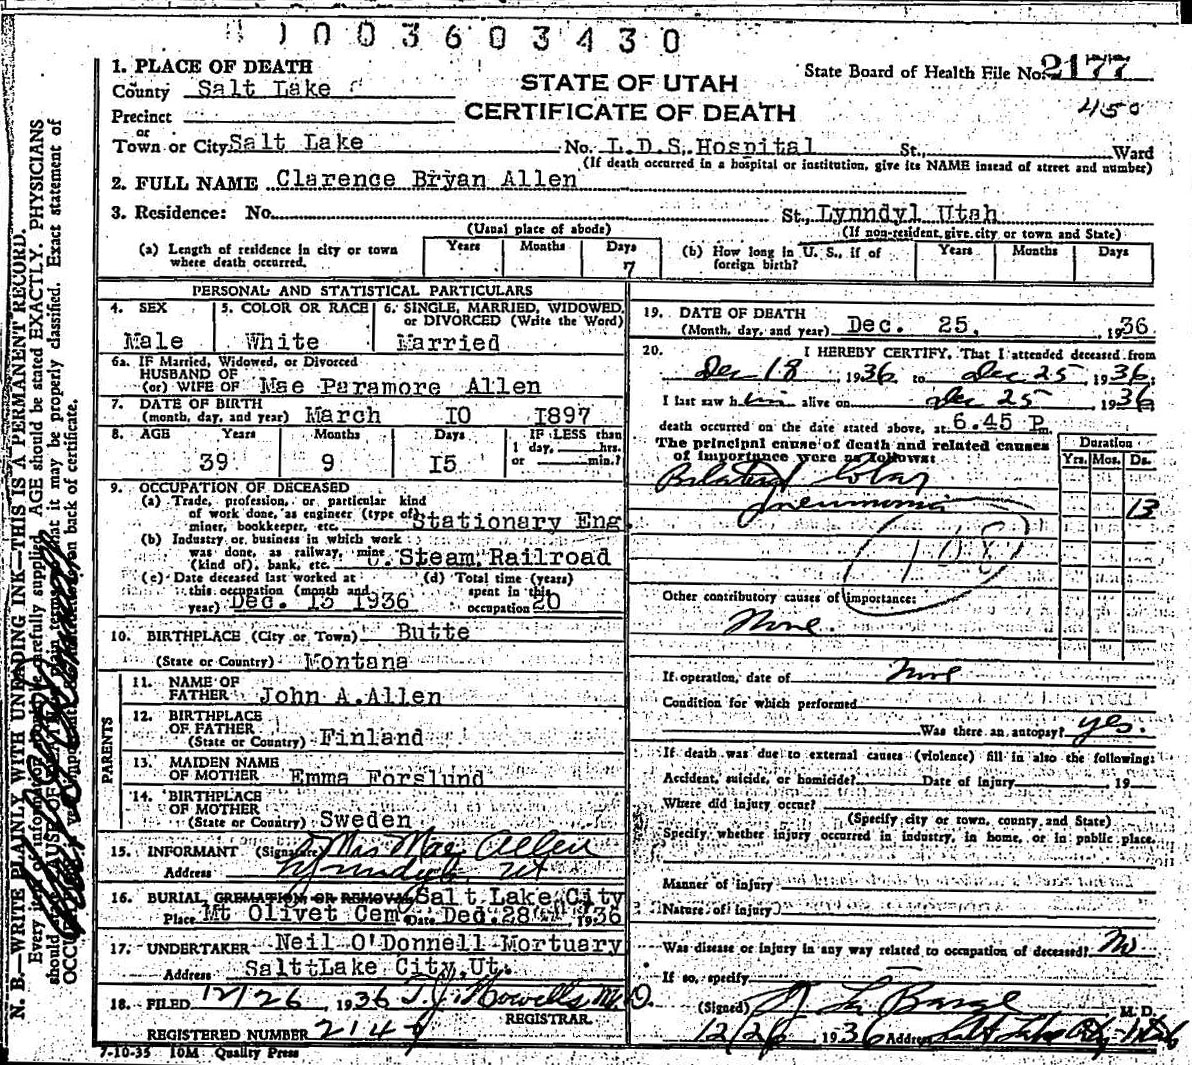 1003603430
1. PLACE OF DEATH
County Salt Lake
STATE OF UTAH
CERTIFICATE OF DEATH
State Board of Health File No. 2177
450
Precinct
or
Town or City Salt Lake No. L.D.S. Hospital St., Ward
(If death occurred in a hospital or institution, give its NAME instead of street and number)
2. FULL NAME Clarence Bryan Allen
3. Residence: No. St., Lynndyl Utah
(Usual place of abode) (If non-resident, give city or town and State)
(a) Length of residence in city or town where death occurred. Years Months Days 7
(b) How long in U. S., if of foreign birth? Years Months Days
PERSONAL AND STATISTICAL PARTICULARS
4. SEX Male
5. COLOR OR RACE White
6. SINGLE, MARRIED, WIDOWED, or DIVORCED (Write the Word) Married
6a. IF Married, Widowed, or Divorced
HUSBAND OF
(or) WIFE OF Mae Paramore Allen
7. DATE OF BIRTH
(month, day, and year) March 10 1897
8. AGE Years Months Days IF LESS than
1 day, hrs.
or min.?
39 9 15
9. OCCUPATION OF DECEASED
(a) Trade, profession, or particular kind
of work done, as engineer (type of)
miner, bookkeeper, etc. Stationary Eng.
(b) Industry or business in which work
was done, as railway, mine
(kind of), bank, etc. Steam Railroad
(c) Date deceased last worked at
this occupation (month and
year) Dec. 13 1936
(d) Total time (years)
spent in this
occupation 20
10. BIRTHPLACE (City or Town) Butte
(State or Country) Montana
PARENTS
11. NAME OF
FATHER John A. Allen
12. BIRTHPLACE
OF FATHER
(State or Country) Finland
13. MAIDEN NAME
OF MOTHER Emma Forslund
14. BIRTHPLACE
OF MOTHER
(State or Country) Sweden
15. INFORMANT (Signature) Mrs Mae Allen
Address Lynndyl, Ut
16. BURIAL CREMATION OR REMOVAL Salt Lake City
Place Mt Olivet Cem Date Dec. 28 1936
17. UNDERTAKER Neil O'Donnell Mortuary
Address Salt Lake City, Ut.
18. FILED 12/26, 1936 T. J. Howells, M.D.
REGISTRAR.
REGISTERED NUMBER
7-10-35 10M Quality Press
19. DATE OF DEATH
(Month, day, and year) Dec. 25, 1936
20. I HEREBY CERTIFY, That I attended deceased from
Dec 18, 1936 to Dec 25, 1936;
I last saw him alive on Dec 25, 1936
death occurred on the date stated above, at 6.45 P m.
The principal cause of death and related causes
of importance were as follows:
Duration
Yrs. Mos. Ds.
Bilateral lobar
pneumonia 13
108
Other contributory causes of importance:
None.
If operation, date of None
Condition for which performed
Was there an autopsy? yes.
If death was due to external causes (violence) fill in also the following:
Accident, suicide, or homicide? Date of injury 19
Where did injury occur?
(Specify city or town, county, and State)
Specify whether injury occurred in industry, in home, or in public place.
Manner of injury
Nature of injury
Was disease or injury in any way related to occupation of deceased? No
If so, specify
(Signed) La Barge M. D.
12/26, 1936 Address Salt Lake City Utah
N. B.—WRITE PLAINLY WITH UNFADING INK—THIS IS A PERMANENT RECORD.
Every item of information carefully supplied. AGE should be stated EXACTLY. PHYSICIANS
should CAUSE OF terms that it may be properly classified. Exact statement of
OCCUPATION on back of certificate.